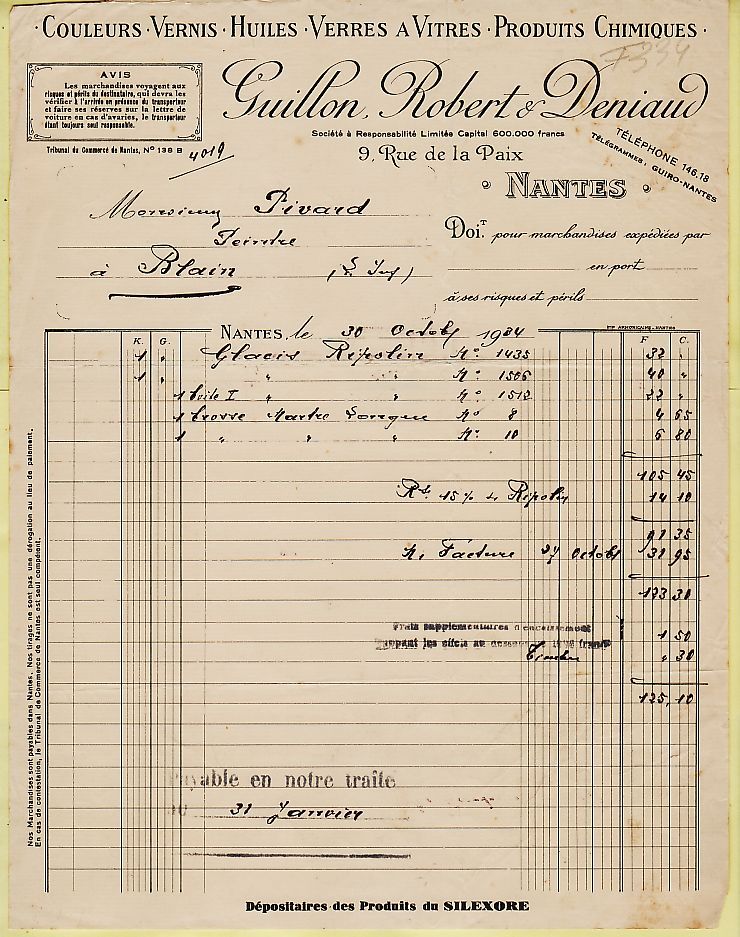 ·COULEURS·VERNIS·HUILES·VERRES A VITRES·PRODUITS CHIMIQUES·
AVIS
Les marchandises voyagent aux
risques et périls du destinataire, qui devra les
vérifier à l'arrivée en présence du transporteur
et faire ses réserves sur la lettre de
voiture en cas d'avaries, le transporteur
étant toujours seul responsable.
Tribunal du Commerce de Nantes, N° 138 B
4019
Guillon, Robert & Deniaud
Société à Responsabilité Limitée Capital 600.000 francs
9, Rue de la Paix
TÉLÉPHONE 146.18
TÉLÉGRAMMES, GUIRO-NANTES
NANTES
Monsieur Pivard
Peintre
à Blain (L. Inf)
Doit pour marchandises expédiées par
en port
à ses risques et périls
NANTES, le 30 Octobr 1934
K. G. F C.
1 " Glacis Ripolin N° 1435 32 "
1 " " " N° 1506 40 "
1 boite I " " N° 1512 22 "
1 brosse Martre Longue N° 8 4 65
1 " " " N° 10 6 80
105 45
Rse 15% s/ Ripolin 14 10
91 35
N/ Facture 27 Octobr 31 95
123 30
Frais supplémentaires d'encaissement
frappant les effets au dessous francs 1 50
Timbre " 30
125,10
Payable en notre traite
31 Janvier
Nos Marchandises sont payables dans Nantes. Nos tirages ne sont pas une dérogation au lieu de paiement.
En cas de contestation, le Tribunal de Commerce de Nantes est seul compétent.
Dépositaires des Produits du SILEXORE